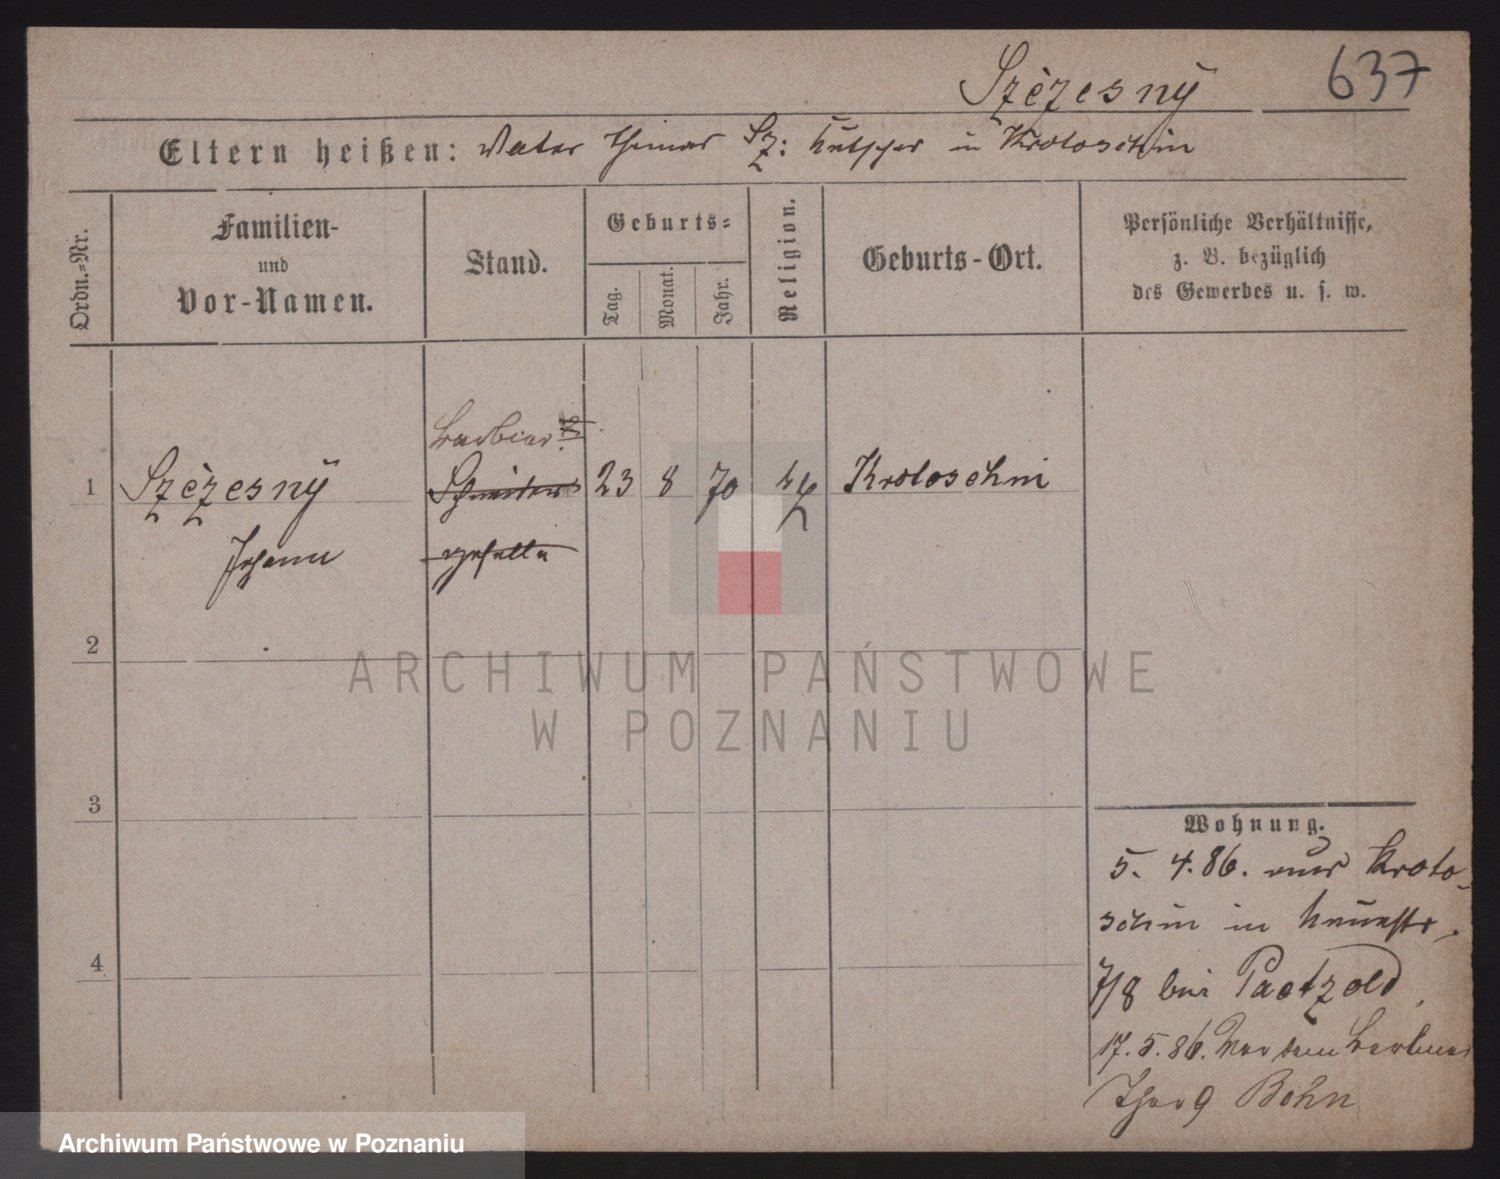 Szczesny 637
Eltern heißen: Vater Thomas Sz: Kutscher in Krotoschin
Ordn.=Nr.
Familien-
und
Vor-Namen.
Stand.
Geburts=
Tag.
Monat.
Jahr.
Religion.
Geburts-Ort.
Persönliche Verhältnisse,
z. B. bezüglich
des Gewerbes u. s. w.
Barbier
1 Szczesny Schneider 23 8 70 Krotoschin
Johann geselle
2
3
4
Wohnung.
5. 4. 86. aus Kroto-
schin in
7/8 bei Paetzold
17. 5. 86. Barbier
9 Bohn
ARCHIWUM PAŃSTWOWE
W POZNANIU
Archiwum Państwowe w Poznaniu